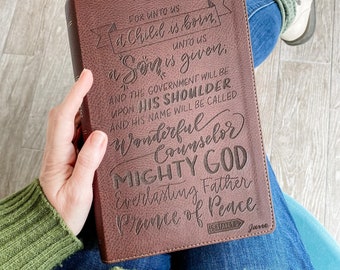 FOR UNTO US
a Child is born,
UNTO US
a Son is given,
AND THE GOVERNMENT WILL BE
UPON HIS SHOULDER
AND HIS NAME WILL BE CALLED
Wonderful
Counselor
MIGHTY GOD
Everlasting Father
Prince of Peace
June